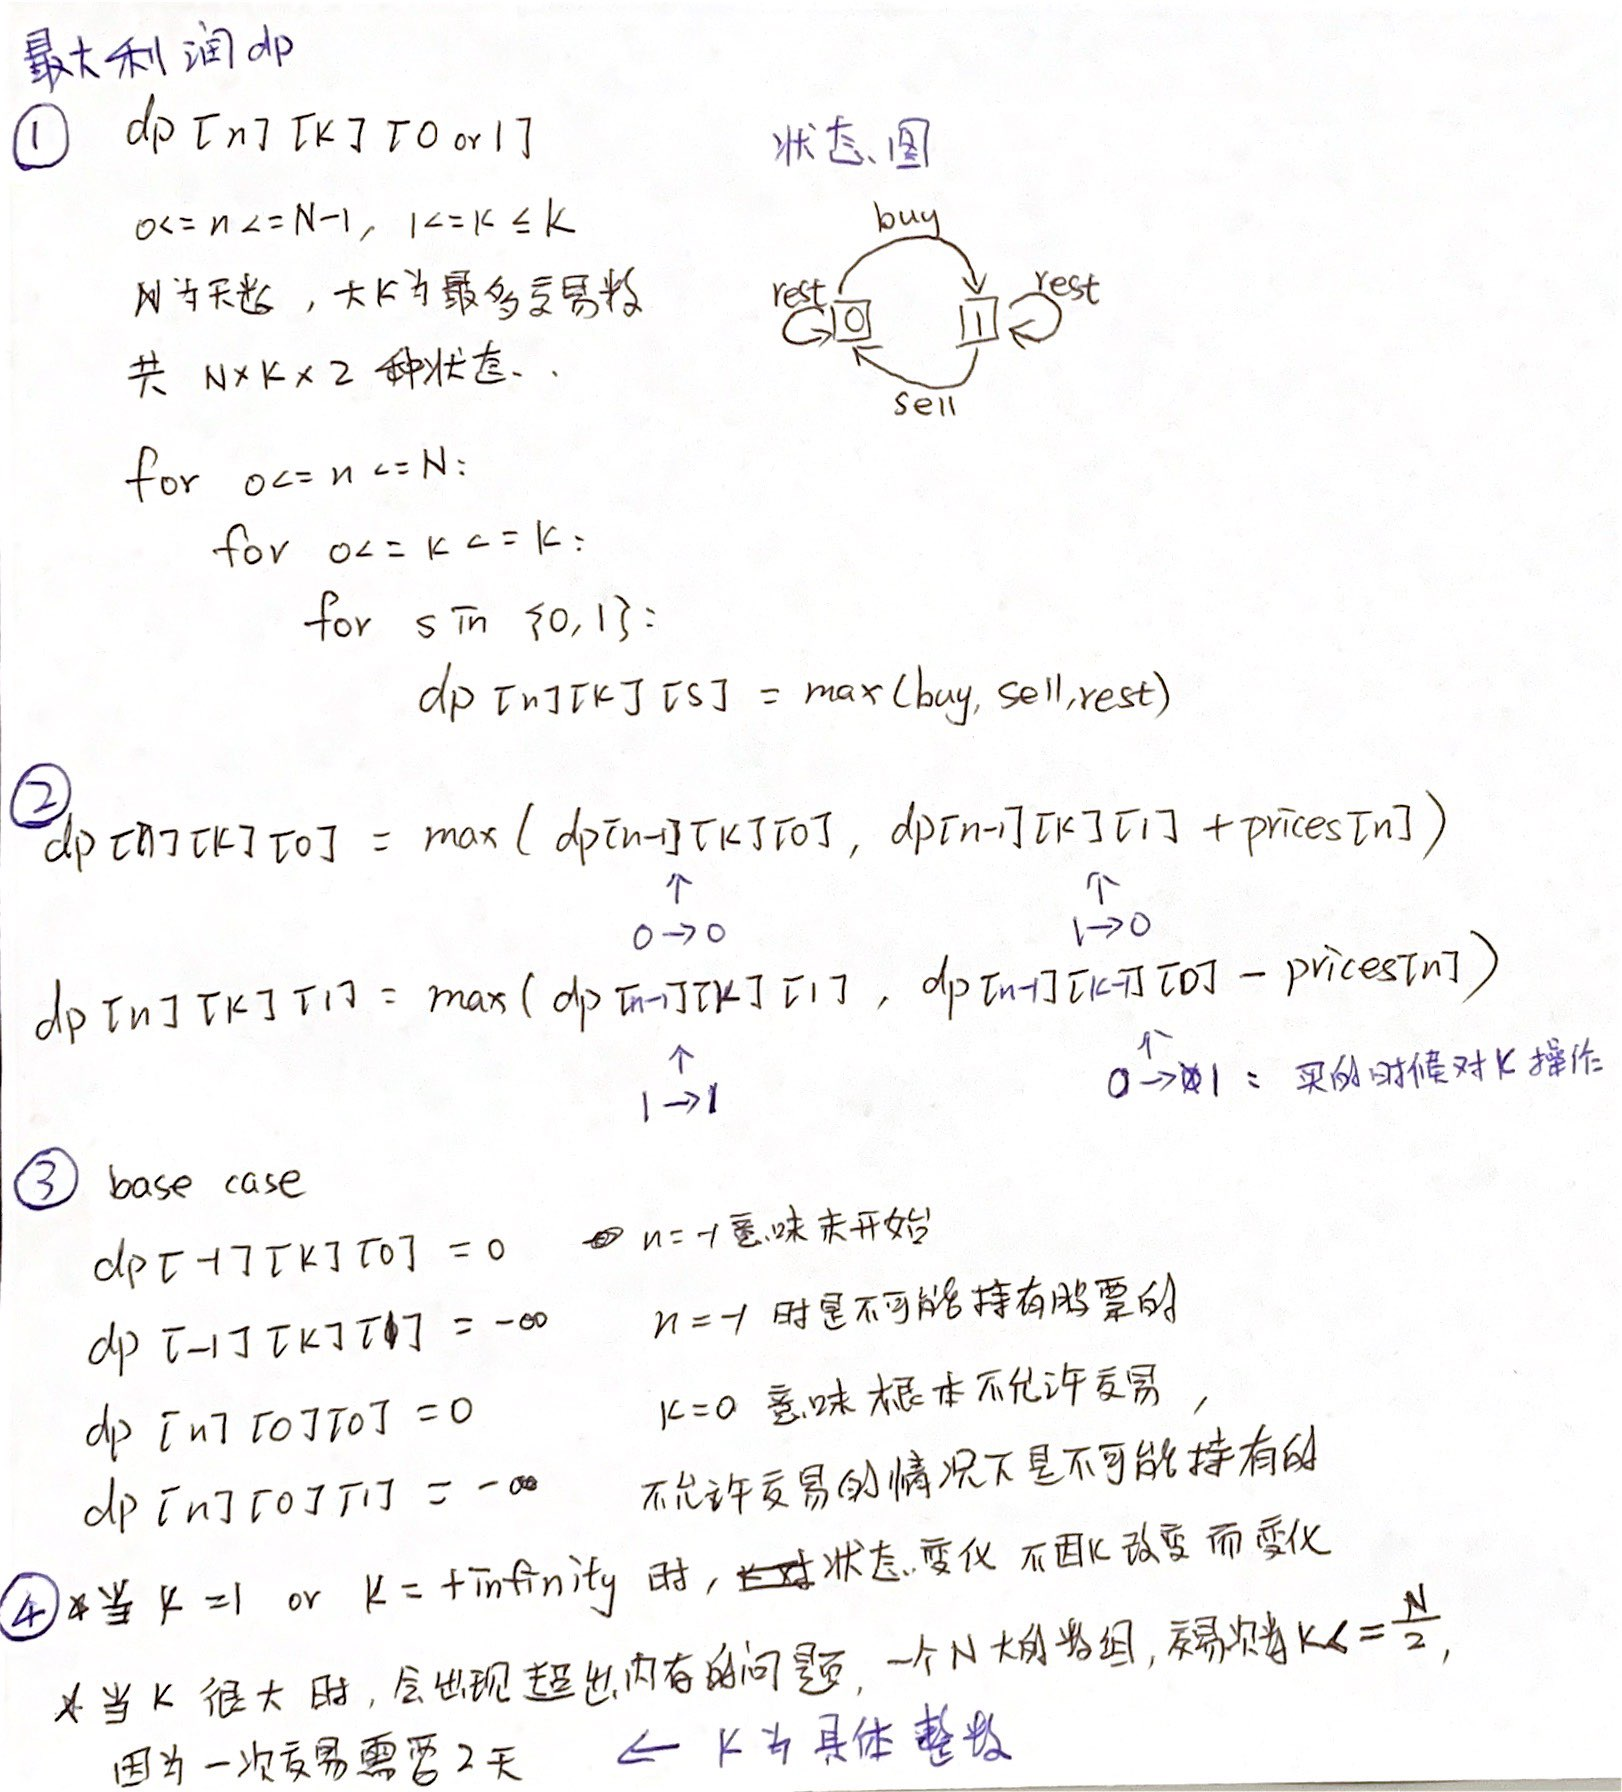 最大利润dp
① dp[n][K][0 or 1]
0<=n<=N-1, 1<=K≤K
N为天数，大K为最多交易数
共 N×K×2 种状态..
状态图
buy
rest 0 1 rest
sell
for 0<=n<=N:
for 0<=K<=K:
for s in {0,1}:
dp[n][K][S] = max(buy, sell, rest)
② dp[n][K][0] = max( dp[n-1][K][0], dp[n-1][K][1] + prices[n])
↑ ↑
0→0 1→0
dp[n][K][1] = max( dp[n-1][K][1], dp[n-1][K-1][0] - prices[n])
↑ ↑
1→1 0→1: 买的时候对K操作
③ base case
dp[-1][K][0] = 0 n=-1意味未开始
dp[-1][K][1] = -∞ n=-1 时是不可能持有股票的
dp[n][0][0] = 0 K=0 意味根本不允许交易，
dp[n][0][1] = -∞ 不允许交易的情况下是不可能持有的
④ *当 K=1 or K=+infinity 时，状态变化 不因K改变而变化
*当 K 很大时，会出现超出内存的问题，一个N大的数组，交易次数K<=N/2,
因为一次交易需要2天 ← K为具体整数